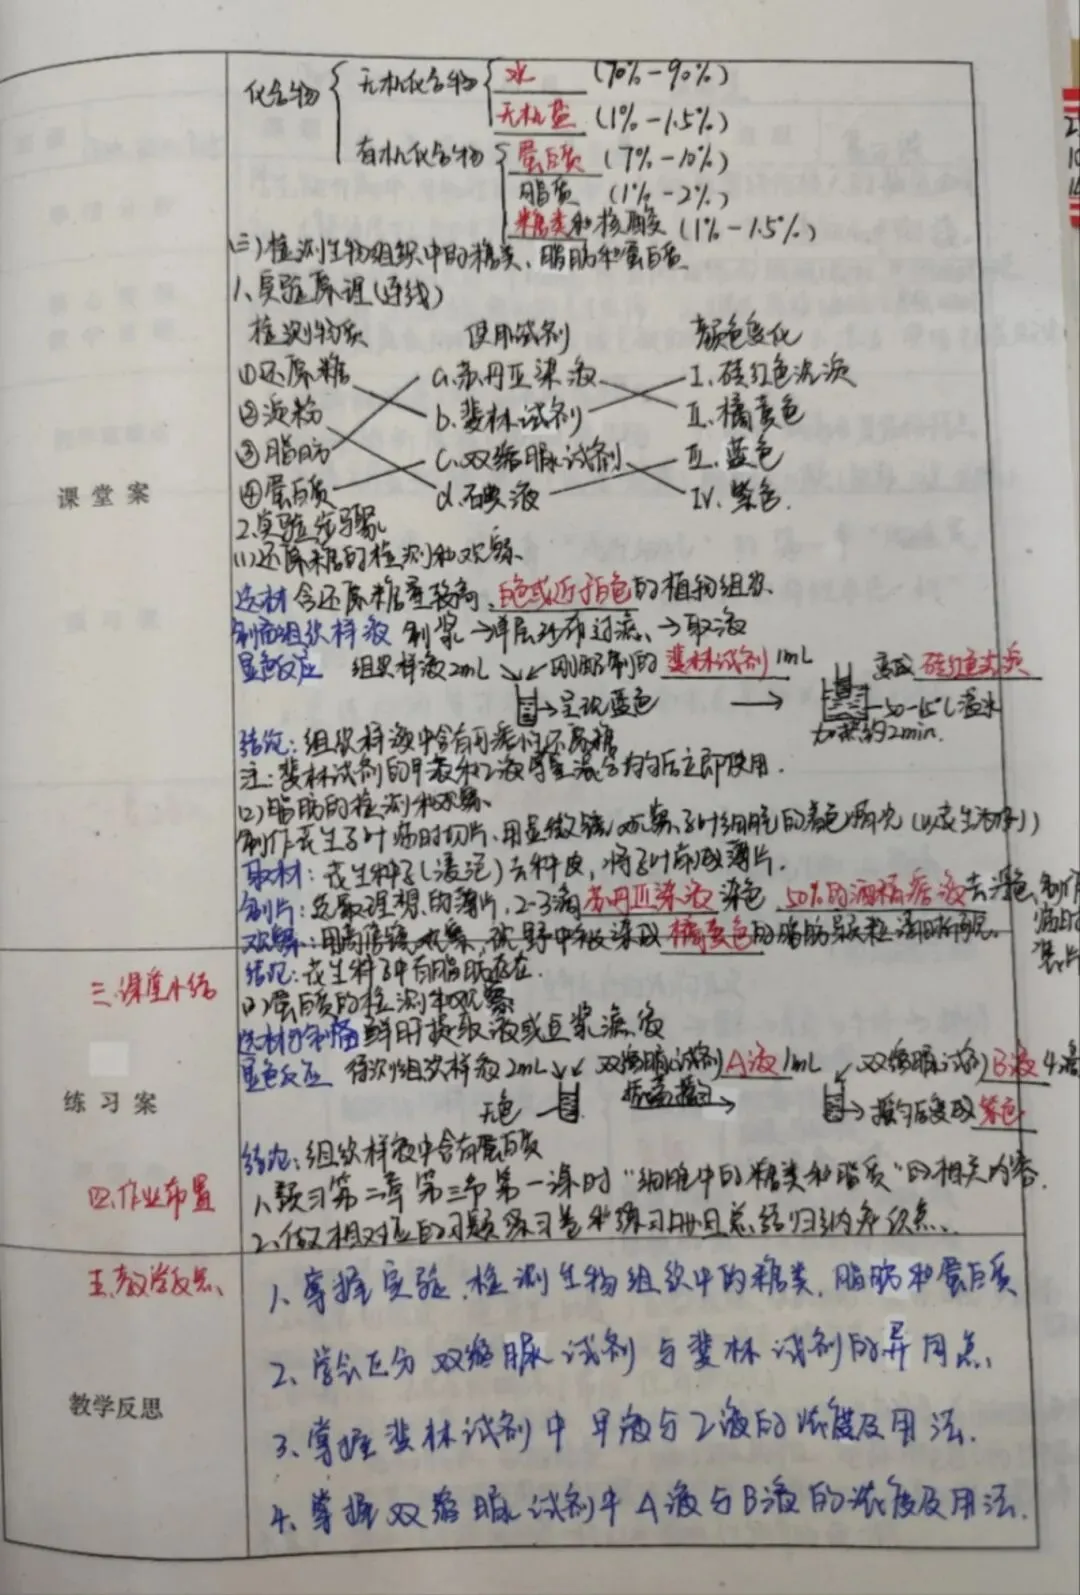 化合物 无机化合物 水 (70%-90%)
无机盐 (1%-1.5%)
有机化合物 蛋白质 (7%-10%)
脂质 (1%-2%)
糖类和核酸 (1%-1.5%)
(三)检测生物组织中的糖类、脂肪和蛋白质
1、实验原理(连线)
检测物质 使用试剂 颜色变化
①还原糖 a.苏丹Ⅲ染液 Ⅰ.砖红色沉淀
②淀粉 b.斐林试剂 Ⅱ.橘黄色
③脂肪 c.双缩脲试剂 Ⅲ.蓝色
④蛋白质 d.碘液 Ⅳ.紫色.
课堂案
2.实验步骤
(1)还原糖的检测和观察、
选材 含还原糖量较高、白色或近于白色的植物组织
制备组织样液 制浆→单层纱布过滤、→取液
显色反应 组织样液2mL 刚配制的斐林试剂1mL 变成砖红色
呈现蓝色 温水
加热约2min.
结论:组织样液中含有可溶性还原糖
注:斐林试剂的甲液和乙液等量混合均匀后立即使用.
(2)脂肪的检测和观察、
制作花生子叶临时切片,用显微镜观察子叶细胞的着色情况(以花生为例)
取材:花生种子(浸泡)去种皮,将子叶削成薄片.
制片:选取理想的薄片,2-3滴苏丹Ⅲ染液染色 50%的酒精溶液去浮色,制作临时装片
观察:用高倍镜观察,视野中被染成橘黄色的脂肪颗粒清晰可见.
三.课堂小结
结论:花生种子中有脂肪存在.
蛋白质的检测和观察
选材与制备 鲜肝提取液或豆浆滤液
显色反应 待测组织样液2mL 双缩脲试剂A液1mL 双缩脲试剂B液4滴
练习案
无色 振荡摇匀 摇匀后变成紫色
结论:组织样液中含有蛋白质
四.作业布置
1、预习第二章第三节第一课时“细胞中的糖类和脂质”的相关内容.
2、做相对应的习题练习卷和练习册且总结归纳知识点、
五.教学反思、
1、掌握实验.检测生物组织中的糖类.脂肪和蛋白质
2、学会区分双缩脲试剂与斐林试剂的异同点.
教学反思
3、掌握斐林试剂中甲液与乙液的浓度及用法.
4、掌握双缩脲试剂中A液与B液的浓度及用法.